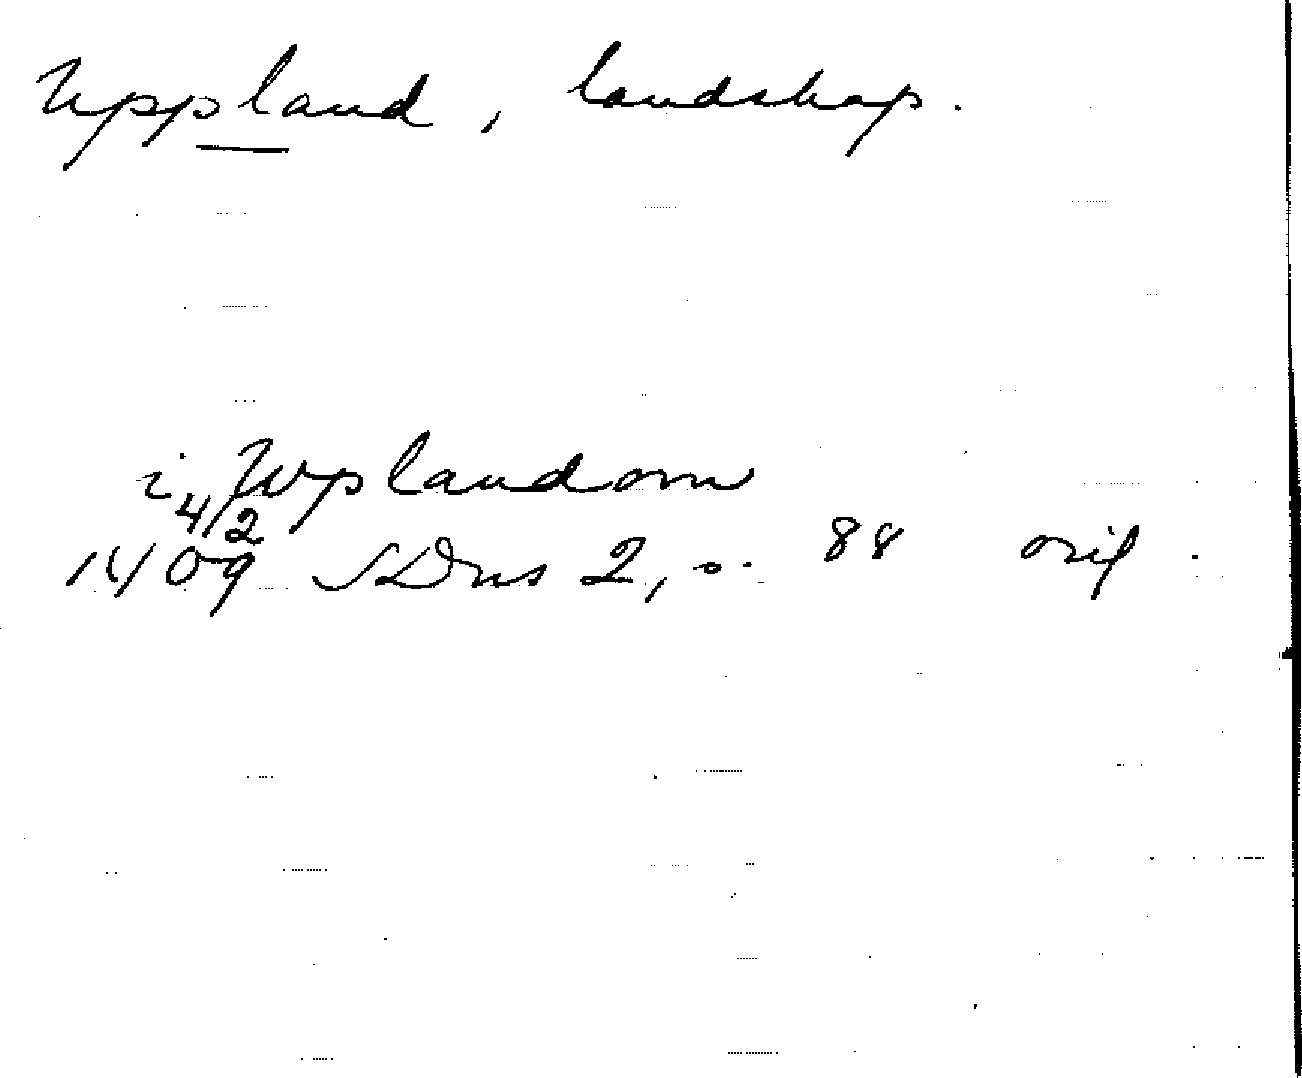 Uppland, landskap.
i Wplandom
4/2
1409 SDns 2, s. 88 orig.